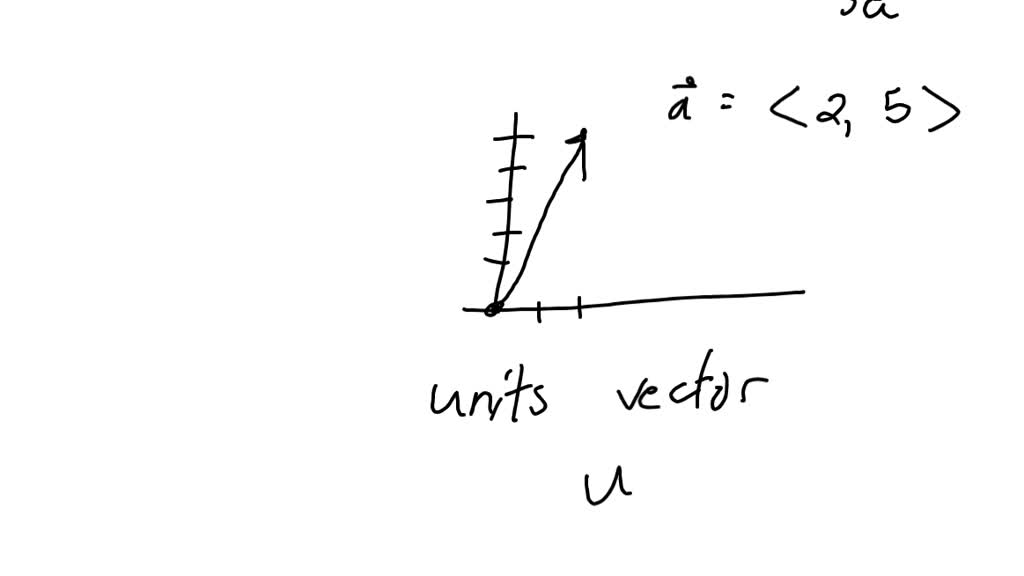 a⃗ = <2, 5>
units vector
u